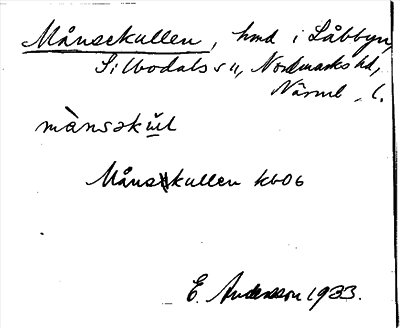 Månsekullen, hmd i Låbbyn,
Silbodals sn, Nordmarks hd,
Värml. l.
mànsəku̇l
Månskullen kbO6
E. Andersson 1933.